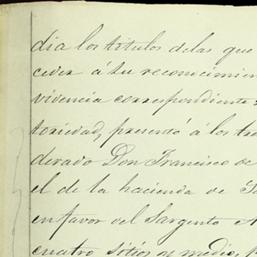 dia los titulos delas que
ceder á su reconocimien
vivencia correspondiente
toriedad, presentó á los tre
derado Don Francisco de
el de la hacienda de
en favor del Sargento
cuatro sitios y medio,